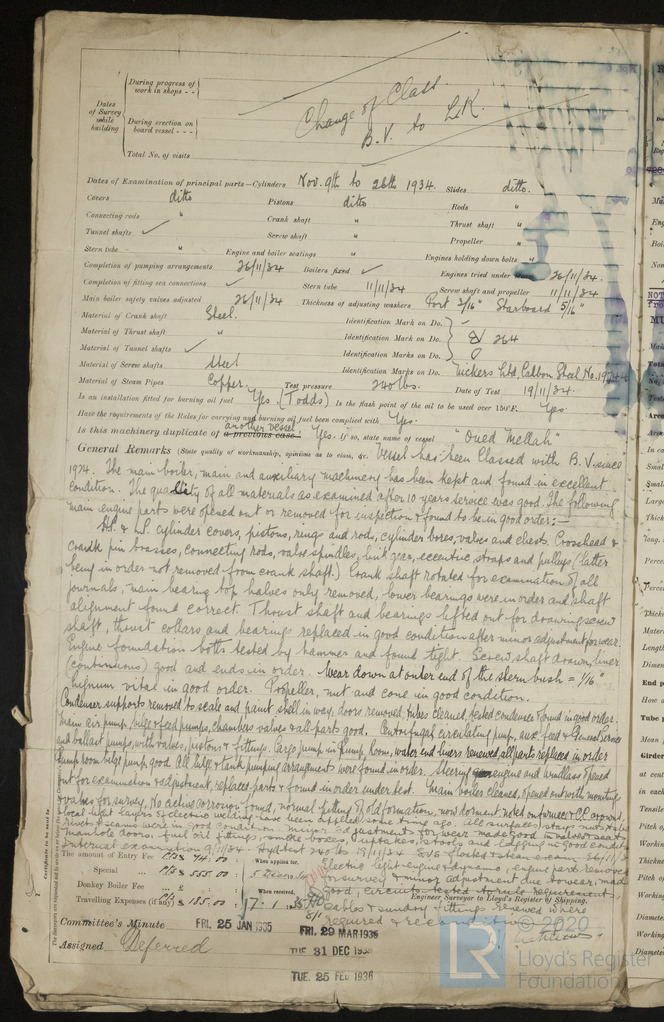 During progress of
work in shops - -
Dates
of Survey
while
building
During erection on
board vessel - - -
Total No. of visits
Change of Class
B.V. to L.R.
Dates of Examination of principal parts—Cylinders Nov. 9th to 26th 1934. Slides ditto.
Covers ditto Pistons ditto Rods "
Connecting rods " Crank shaft " Thrust shaft "
Tunnel shafts ✓ Screw shaft " Propeller "
Stern tube " Engine and boiler seatings " Engines holding down bolts "
Completion of pumping arrangements 26/11/34 Boilers fixed ✓ Engines tried under 26/11/34
Completion of fitting sea connections ✓ Stern tube 11/11/34 Screw shaft and propeller 11/11/34
Main boiler safety valves adjusted 26/11/34 Thickness of adjusting washers Port 3/16" Starboard 5/16"
Material of Crank shaft Steel. Identification Mark on Do.
Material of Thrust shaft " Identification Mark on Do. 264
Material of Tunnel shafts ✓ Identification Marks on Do.
Material of Screw shafts Steel Identification Marks on Do. Vickers Ltd.
Material of Steam Pipes Copper. Test pressure 240 lbs. Date of Test 19/11/34.
Is an installation fitted for burning oil fuel Yes. (Todds) Is the flash point of the oil to be used over 150°F. Yes.
Have the requirements of the Rules for carrying and burning oil fuel been complied with Yes.
another vessel
Is this machinery duplicate of a previous case. Yes. If so, state name of vessel "Oued Mellah"
General Remarks (State quality of workmanship, opinions as to class, &c. Vessel has been Classed with B.V. since
1924. The main boiler, main and auxiliary machinery has been kept and found in excellent
condition. The quality of all materials as examined after 10 years service was good. The following
main engine parts were opened out or removed for inspection & found to be in good order:—
H.P. & L.P. cylinder covers, pistons, rings and rods, cylinder bores, valves and chests. Crosshead &
crank pin brasses, connecting rods, valve spindles, link gear, eccentric straps and pulleys (latter
being in order not removed from crank shaft.) Crank shaft rotated for examination of all
journals, main bearing top halves only removed, lower bearings were in order and shaft
alignment found correct. Thrust shaft and bearings lifted out for drawing screw
shaft, thrust collars and bearings replaced in good condition after minor adjustment for wear.
Engine foundation bolts tested by hammer and found tight. Screw shaft drawn, liner
(continuous) good and ends in order. Wear down at outer end of the stern bush = 1/16"
lignum vitæ in good order. Propeller, nut and cone in good condition.
Condenser supports removed to scale and paint shell in way, doors removed, tubes cleaned, tested condenser found in good order.
Main air pump, bilge & feed pumps, chambers valves & all parts good. Centrifugal circulating pump, aux. feed & General Service
and ballast pumps, with valves, pistons & fittings. Cargo pump in Pump Room, water end liners renewed, all parts replaced in order
Pump room bilge pump good. All bilge & tank pumping arrangements were found in order. Steering engine and windlass opened
out for examination & adjustment, replaced parts & found in order under test. Main boiler cleaned, opened out with mounting
& valves for survey. No active corrosion found, normal pitting of old formation, now dormant noted on furnace & C.C. around,
local light layers of electric welding have been applied some time ago. All surfaces, stays, nuts & tubes
rivets & seams were in good condition. Minor adjustments for wear made good in valves, seats,
manhole doors. Fuel oil fittings, smoke boxes, uptakes, stools and lagging in good condition
Internal examination 9/11/34. Hyd. test 240 lbs 19/11/34 26/11/34
Electric light engine & dynamo, engine parts removed
for survey & minor adjustment due to wear, made
good, circuits tested to rule requirements
cables & sundry fittings renewed where
required &
Engineer Surveyor to Lloyd's Register of Shipping.
The amount of Entry Fee 74.00 When applied for,
Special 555.00
Donkey Boiler Fee £ When received,
Travelling Expenses (if any) £ 135.00 17.1.35
Committee's Minute FRI. 25 JAN 1935 FRI. 29 MAR 1935
TUE. 31 DEC 1935
Assigned Deferred
TUE. 25 FEB 1936
© 2020
LR
Lloyd's Register
Foundation